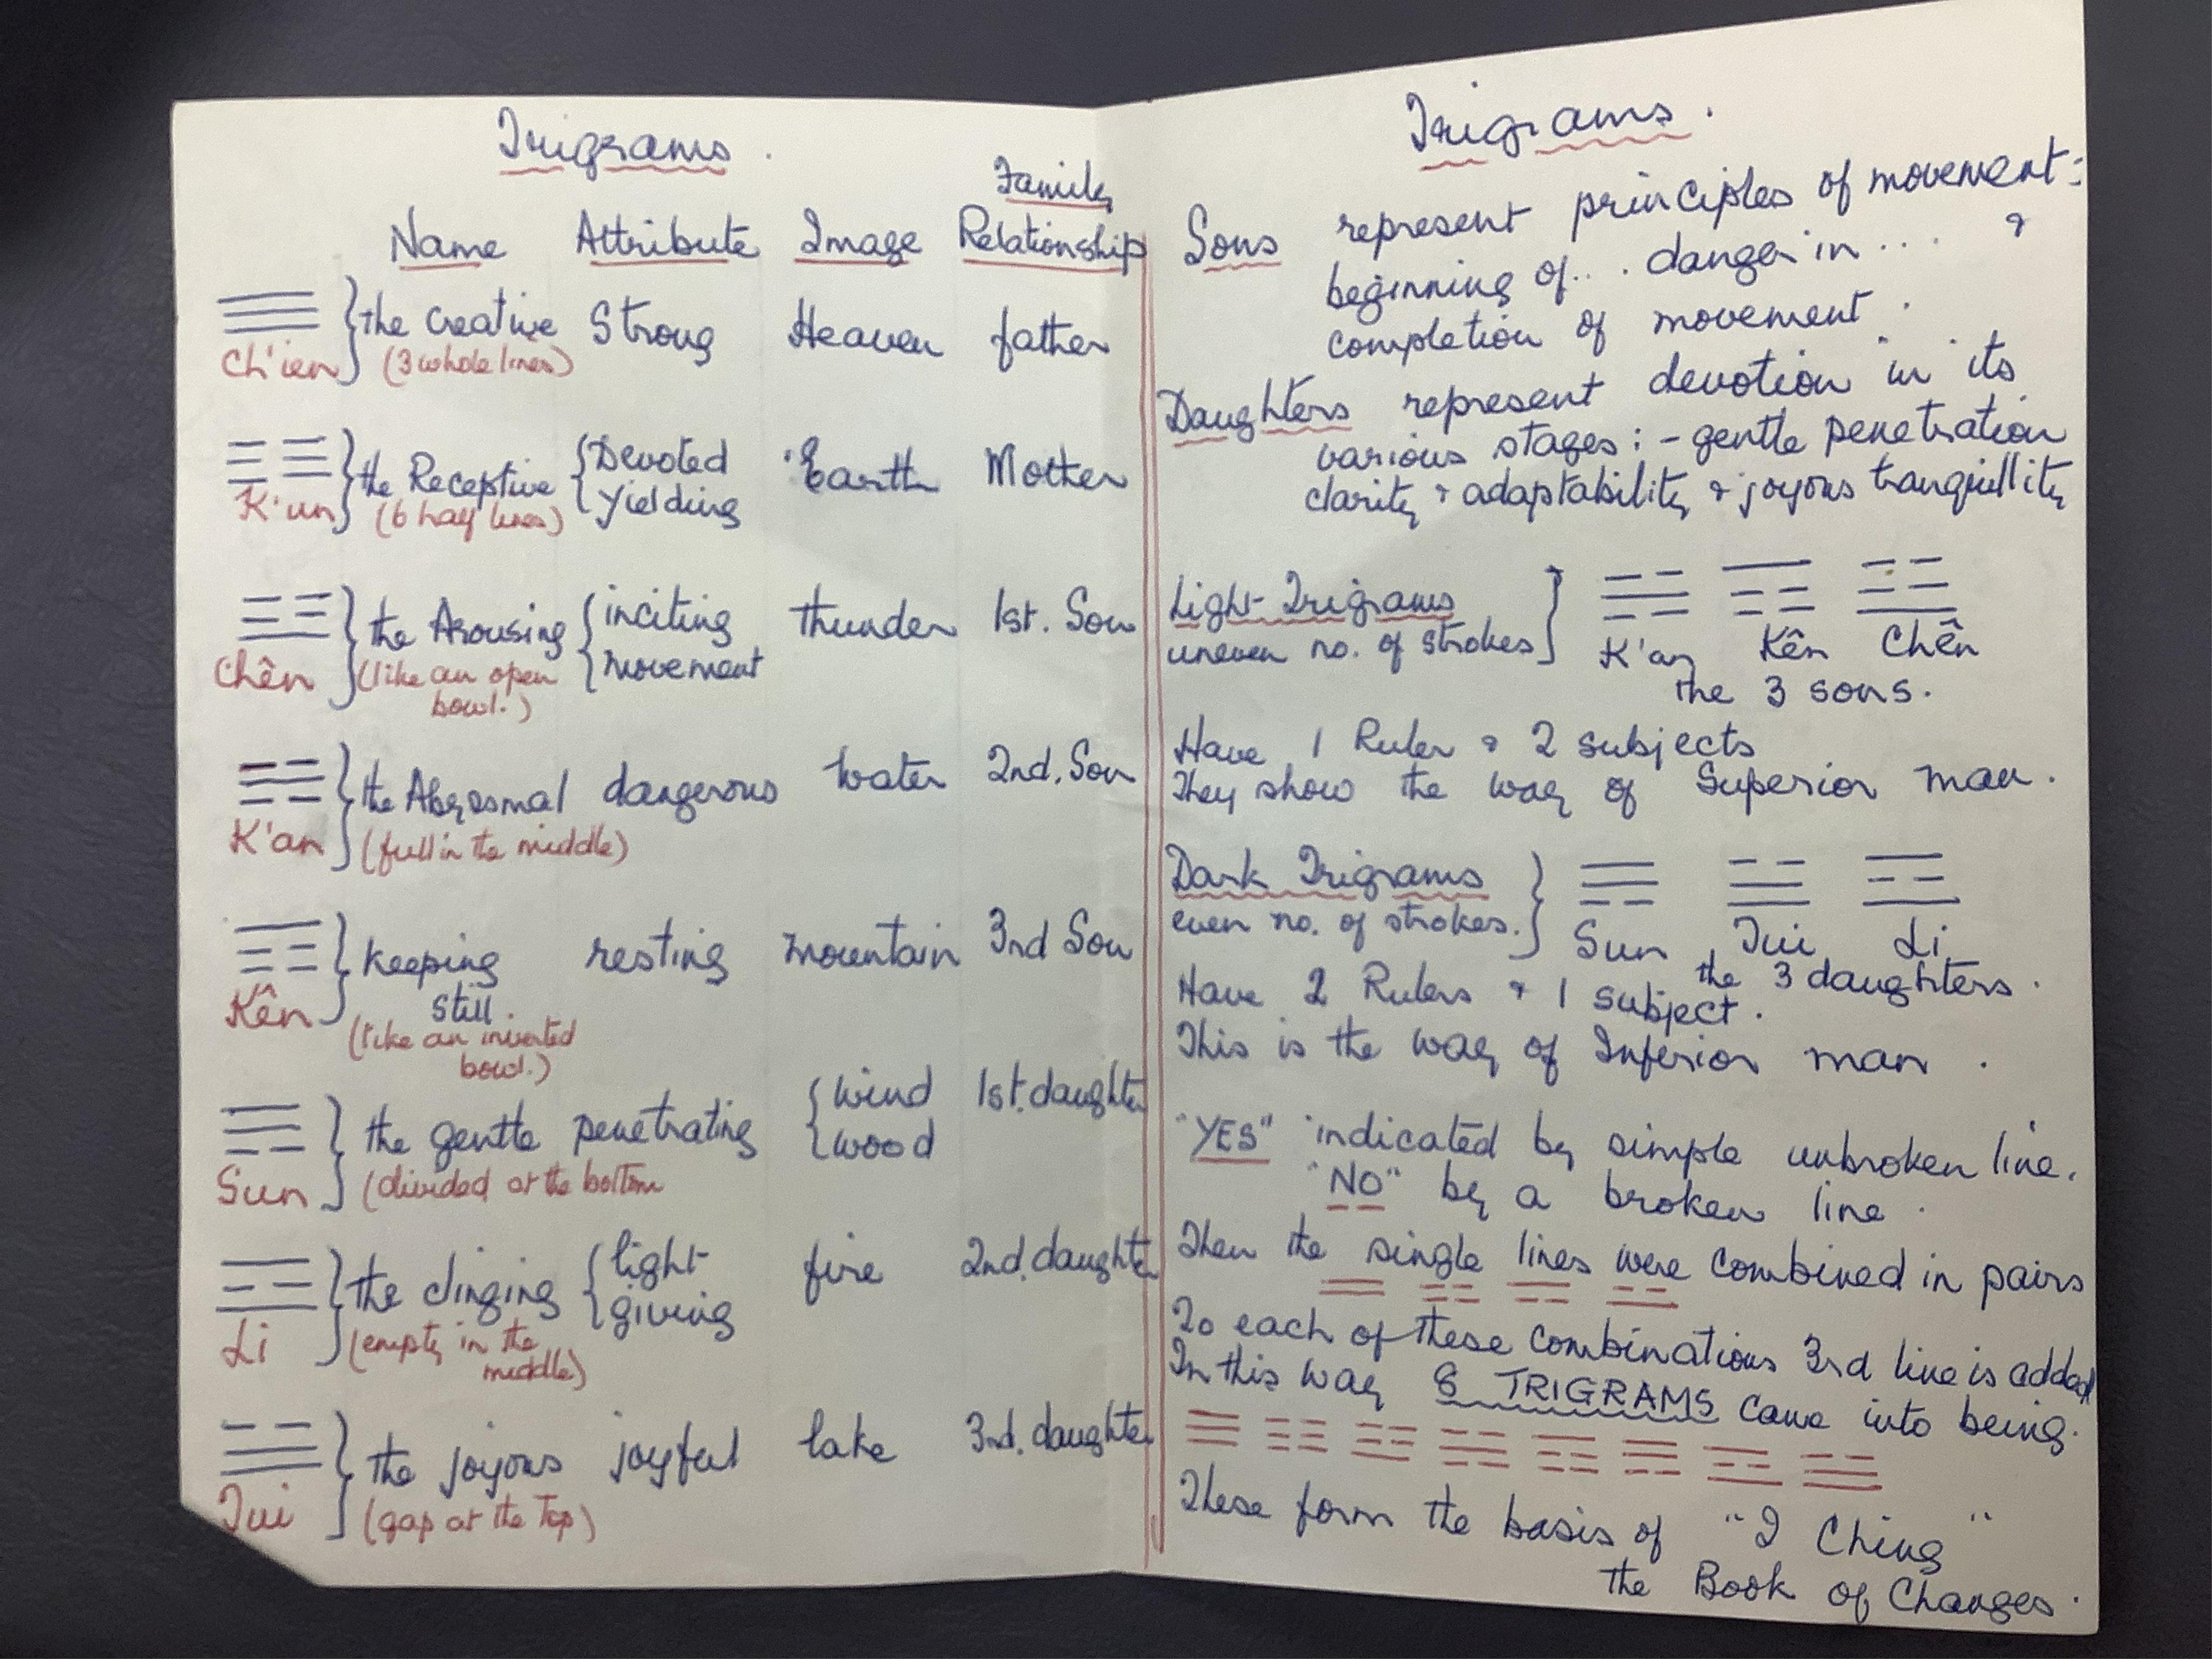 Trigrams.
Family
Name Attribute Image Relationship
the Creative Strong Heaven father
Ch'ien (3 whole lines)
the Receptive Devoted Earth Mother
Yielding
K'un (6 half lines)
the Arousing inciting thunder 1st. Son
movement
Chên (like an open
bowl.)
the Abysmal dangerous water 2nd. Son
K'an (full in the middle)
keeping resting mountain 3rd Son
still.
Kên (like an inverted
bowl.)
the gentle penetrating wind 1st. daughter
wood
Sun (divided at the bottom
the clinging light- fire 2nd. daughter
giving
Li (empty in the
middle)
the joyous joyful lake 3rd. daughter
Tui (gap at the top)
Trigrams.
Sons represent principles of movement:-
beginning of... danger in... &
completion of movement.
Daughters represent devotion in its
various stages:- gentle penetration
clarity & adaptability & joyous tranquillity
Light Trigrams
uneven no. of strokes
K'an Kên Chên
the 3 sons.
Have 1 Ruler & 2 subjects
They show the way of Superior man.
Dark Trigrams
even no. of strokes.
Sun Tui Li
the 3 daughters.
Have 2 Rulers & 1 subject.
This is the way of Inferior man.
"YES" indicated by simple unbroken line.
"NO" by a broken line.
Then the single lines were combined in pairs
To each of these combinations 3rd line is added
In this way 8 TRIGRAMS came into being.
These form the basis of "I Ching"
the Book of Changes.